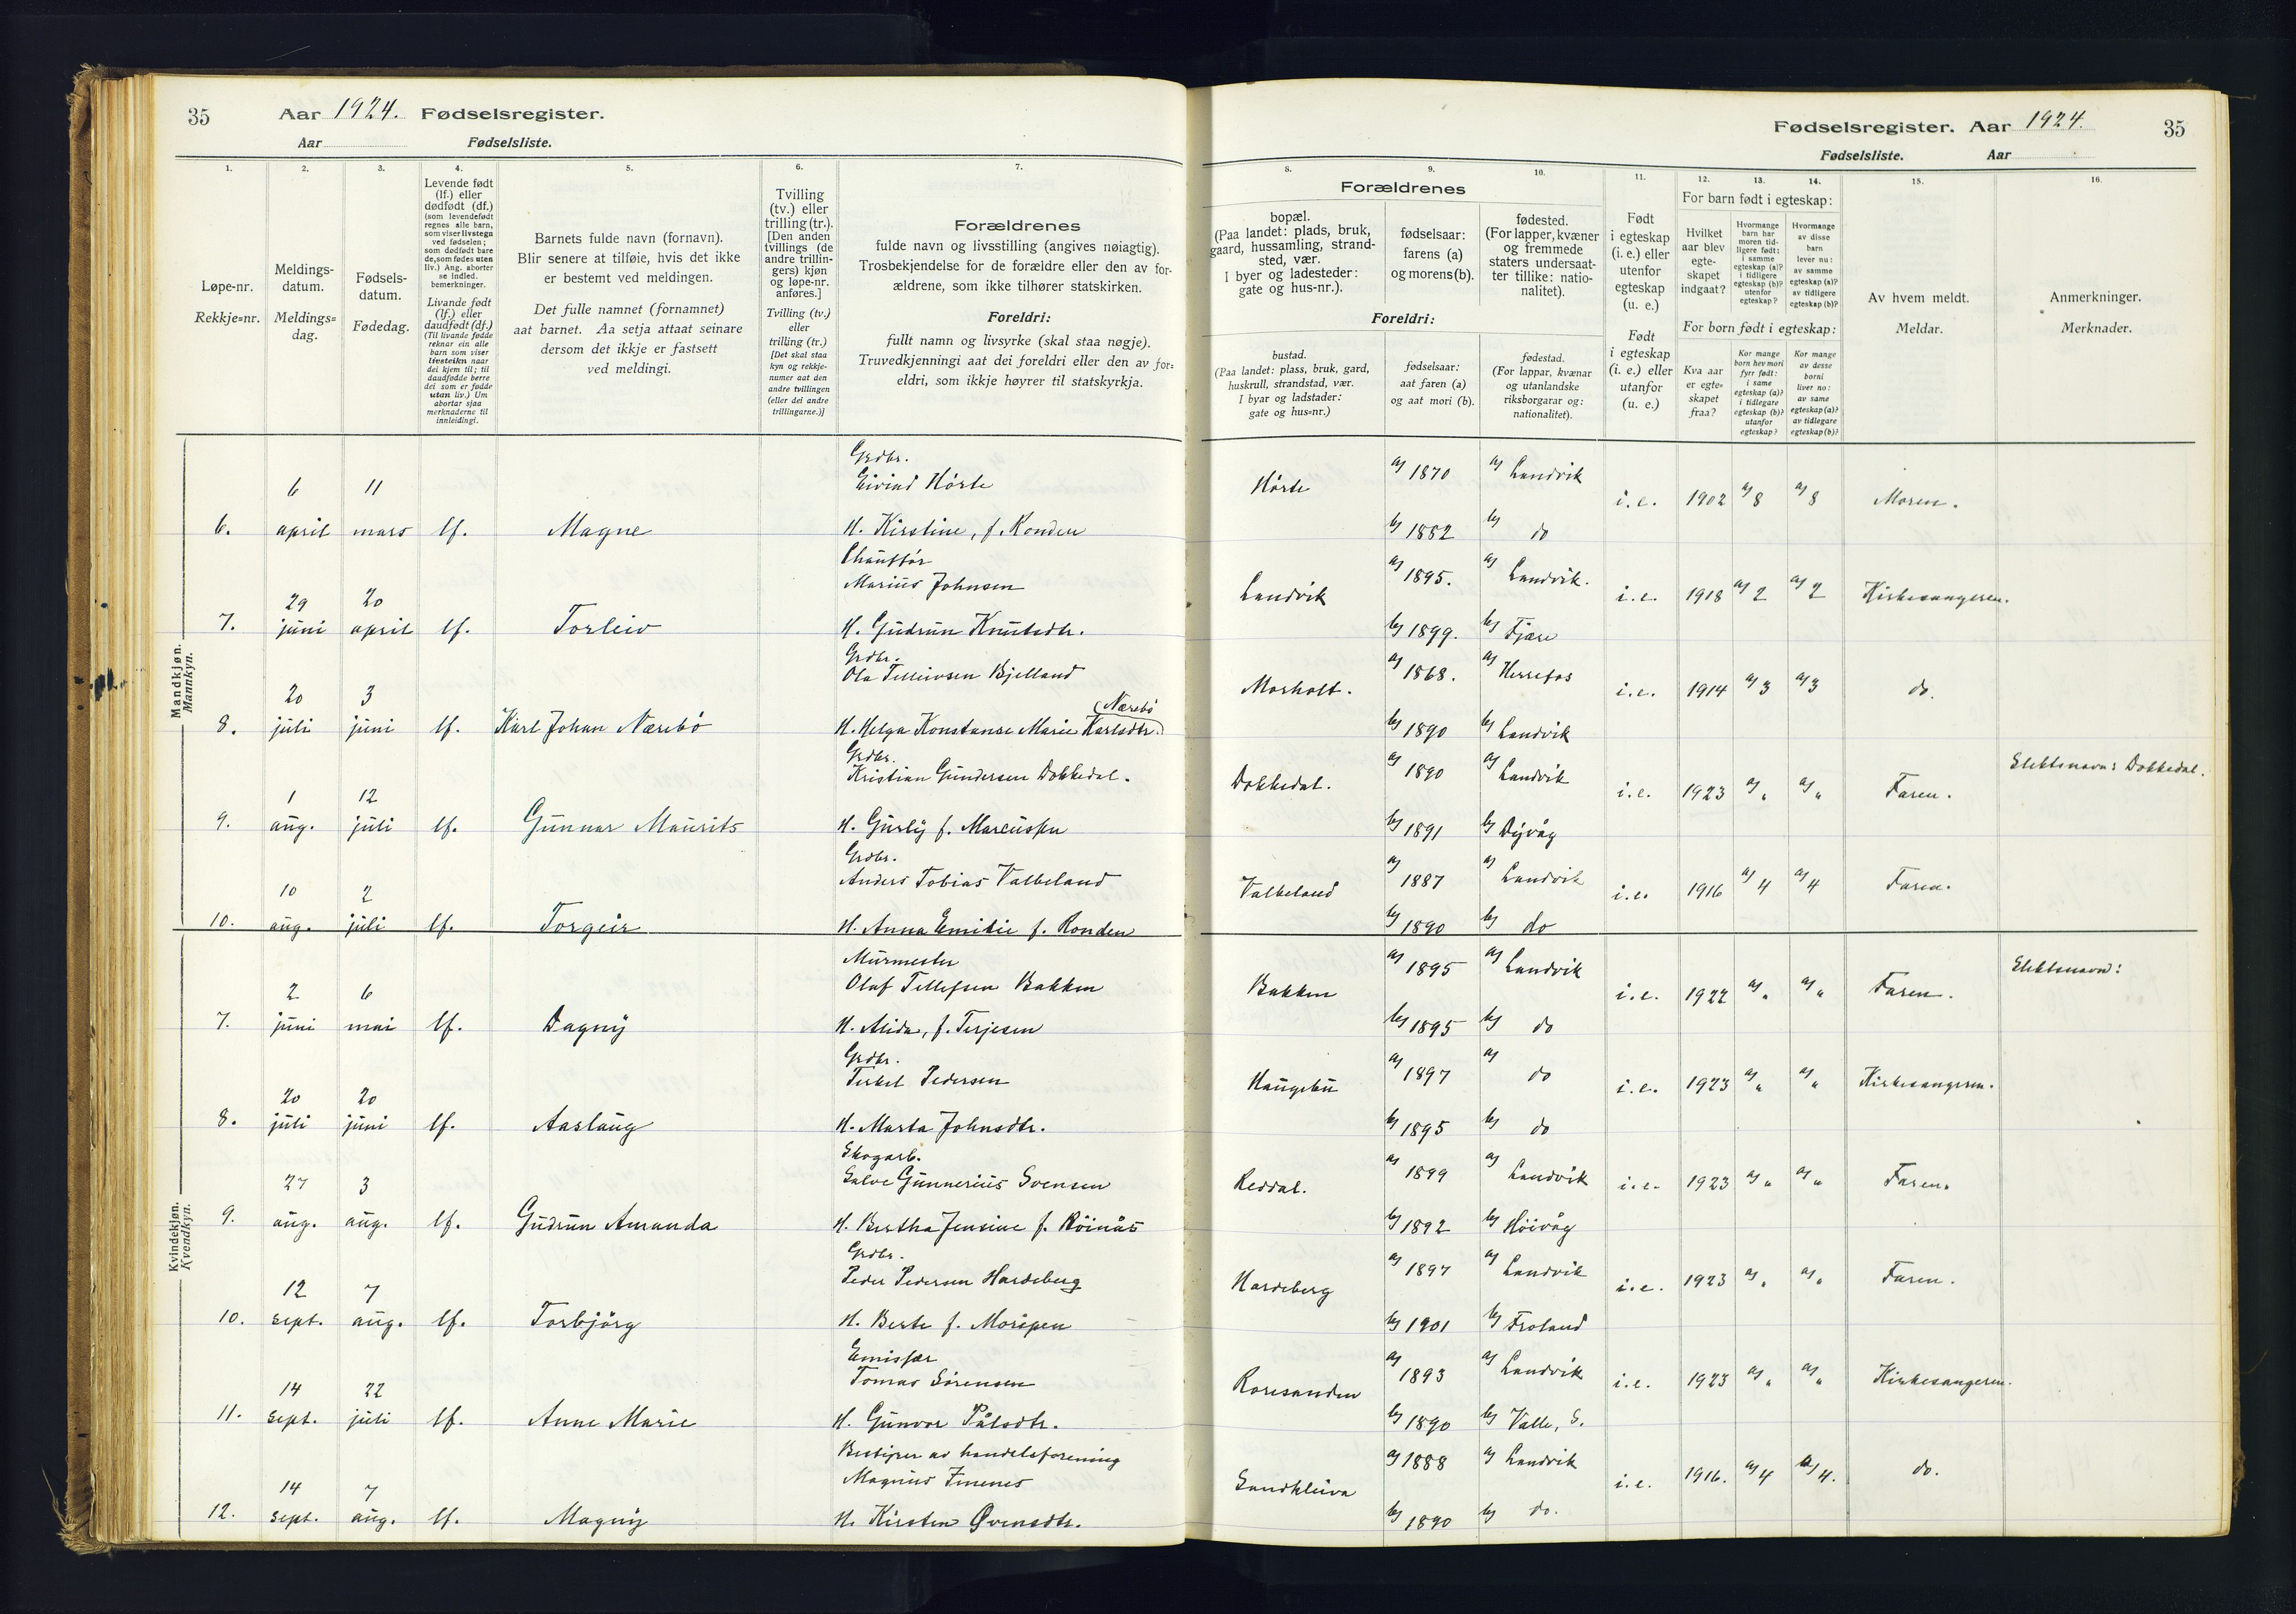 35 Aar 1924. Fødselsregister.
Aar Fødselsliste.
Fødselsregister. Aar 1924. 35
Fødselsliste. Aar
1. 2. 3. 4. 5. 6. 7.
Løpe-nr.
Rekkje=nr.
Meldings-
datum.
Meldings=
dag.
Fødsels-
datum.
Fødedag.
Levende født
(lf.) eller
dødfødt (df.)
(som levendefødt
regnes alle barn,
som viser livstegn
ved fødselen;
som dødfødt bare
de, som fødes uten
liv.) Ang. aborter
se indled.
bemerkninger.
Livande født
(lf.) eller
daudfødt (df.)
(Til livande fødde
reknar ein alle
barn som viser
livsteikn naar
dei kjem til; til
daudfødde berre
dei som er fødde
utan liv.) Um
abortar sjaa
merknaderne til
innleidingi.
Barnets fulde navn (fornavn).
Blir senere at tilføie, hvis det ikke
er bestemt ved meldingen.
Det fulle namnet (fornamnet)
aat barnet. Aa setja attaat seinare
dersom det ikkje er fastsett
ved meldingi.
Tvilling
(tv.) eller
trilling (tr.).
[Den anden
tvillings (de
andre trillin-
gers) kjøn
og løpe-nr.
anføres.]
Tvilling (tv.)
eller
trilling (tr.)
[Det skal staa
kyn og rekkje-
numer aat den
andre tvillingen
(eller dei andre
trillingarne.)]
Forældrenes
fulde navn og livsstilling (angives nøiagtig).
Trosbekjendelse for de forældre eller den av for-
ældrene, som ikke tilhører statskirken.
Foreldri:
fullt namn og livsyrke (skal staa nøgje).
Truvedkjenningi aat dei foreldri eller den av for=
eldri, som ikkje høyrer til statskyrkja.
8. 9. 10. 11. 12. 13. 14. 15. 16.
Forældrenes
bopæl.
(Paa landet: plads, bruk,
gaard, hussamling, strand-
sted, vær.
I byer og ladesteder:
gate og hus-nr.).
fødselsaar:
farens (a)
og morens (b).
fødested.
(For lapper, kvæner
og fremmede
staters undersaat-
ter tillike: natio-
nalitet).
Foreldri:
bustad.
(Paa landet: plass, bruk, gard,
huskrull, strandstad, vær.
I byar og ladstader:
gate og hus=nr.)
fødselsaar:
aat faren (a)
og aat mori (b).
fødestad.
(For lappar, kvænar
og utanlandske
riksborgarar og:
nationalitet).
Født
i egteskap
(i. e.) eller
utenfor
egteskap
(u. e.)
Født
i egteskap
(i. e.) eller
utanfor
(u. e.)
For barn født i egteskap:
Hvilket
aar blev
egte-
skapet
indgaat?
Hvormange
barn har
moren tid-
ligere født:
i samme
egteskap (a)?
i tidligere
egteskap (b)?
utenfor
egteskap?
Hvormange
av disse
barn
lever nu:
av samme
egteskap (a)?
av tidligere
egteskap (b)?
For born født i egteskap:
Kva aar
er egte-
skapet
fraa?
Kor mange
born hev mori
fyrr født:
i same
egteskap (a)?
i tidlegare
egteskap (b)?
utanfor
egteskap?
Kor mange
av desse
borni
liver no:
av same
egteskap (a)?
av tidlegare
egteskap (b)?
Av hvem meldt.
Meldar.
Anmerkninger.
Merknader.
Mandkjøn.
Mannkyn.
Grdbr.
6 11 Eivind Hørte Hørte a) 1870 a) Landvik i.e. 1902 a) 8 a) 8 Moren.
6. april mars lf. Magne H. Kirstine, f. Ronden b) 1882 b) do
Chauffør
29 20 Marius Johnsen Landvik a) 1895. a) Landvik. i.e. 1918 a) 2 a) 2 Kirkesangeren.
7. juni april lf. Torleiv H. Gudrun Knutsdtr. b) 1899. b) Fjære
Grdbr.
20 3 Ola Tellevsen Bjelland Morholt. a) 1868. a) Herrefos i.e. 1914 a) 3 a) 3 do.
(Nærebø
8. juli juni lf. Karl Johan Nærebø H. Helga Konstanse Marie Karlsdtr.) b) 1890 b) Landvik
Grdbr.
1 12 Kristian Gundersen Dokkedal. Dokkedal. a) 1890 a) Landvik i.e. 1923 a) " a) " Faren. Slektsnavn: Dokkedal.
9. aug. juli lf. Gunnar Maurits H. Gurly f. Marcussen b) 1891 b) Dyvåg
Grdbr.
10 2 Anders Tobias Valbeland Valbeland a) 1887 a) Landvik i.e. 1916 a) 4 a) 4 Faren.
10. aug. juli lf. Torgeir H. Anna Emilie f. Ronden b) 1890 b) do
Kvindekjøn.
Kvendkyn.
Murmester
2 6 Olaf Tellefsen Bakken Bakken a) 1895 a) Landvik i.e. 1922 a) " a) " Faren. Slektsnavn:
7. juni mai lf. Dagny H. Alida, f. Terjesen b) 1895 b) do
Grdbr.
20 20 Terkel Pedersen Haugebu a) 1897 a) do i.e. 1923 a) " a) " Kirkesangeren.
8. juli juni lf. Aaslaug H. Marta Johnsdtr. b) 1895 b) do
Skogarb.
27 3 Salve Gunnerius Svensen Reddal. a) 1899 a) Landvik i.e. 1923 a) " a) " Faren.
9. aug. aug. lf. Gudrun Amanda H. Bertha Jensine f. Röinås b) 1892 b) Høivåg
Grdbr.
12 7 Peder Pedersen Hardeberg Hardeberg a) 1897 a) Landvik i.e. 1923 a) " a) " Faren.
10. sept. aug. lf. Torbjörg H. Berte f. b) 1901 b) Froland
Emissær
14 22 Tomas Sörensen Roresanden a) 1893 a) Landvik i.e. 1923 a) " a) " Kirkesangeren.
11. sept. juli lf. Anne Marie H. Gunvor Pålsdtr. b) 1890 b) Valle, S.
Bestyrer av handelsforening
14 7 Magnus Imenes Sandkleiva a) 1888 a) Landvik i.e. 1916. a) 4 a) 4. do.
12. sept. aug. lf. Magny H. Kirsten Øvensdtr. b) 1890 b) do.